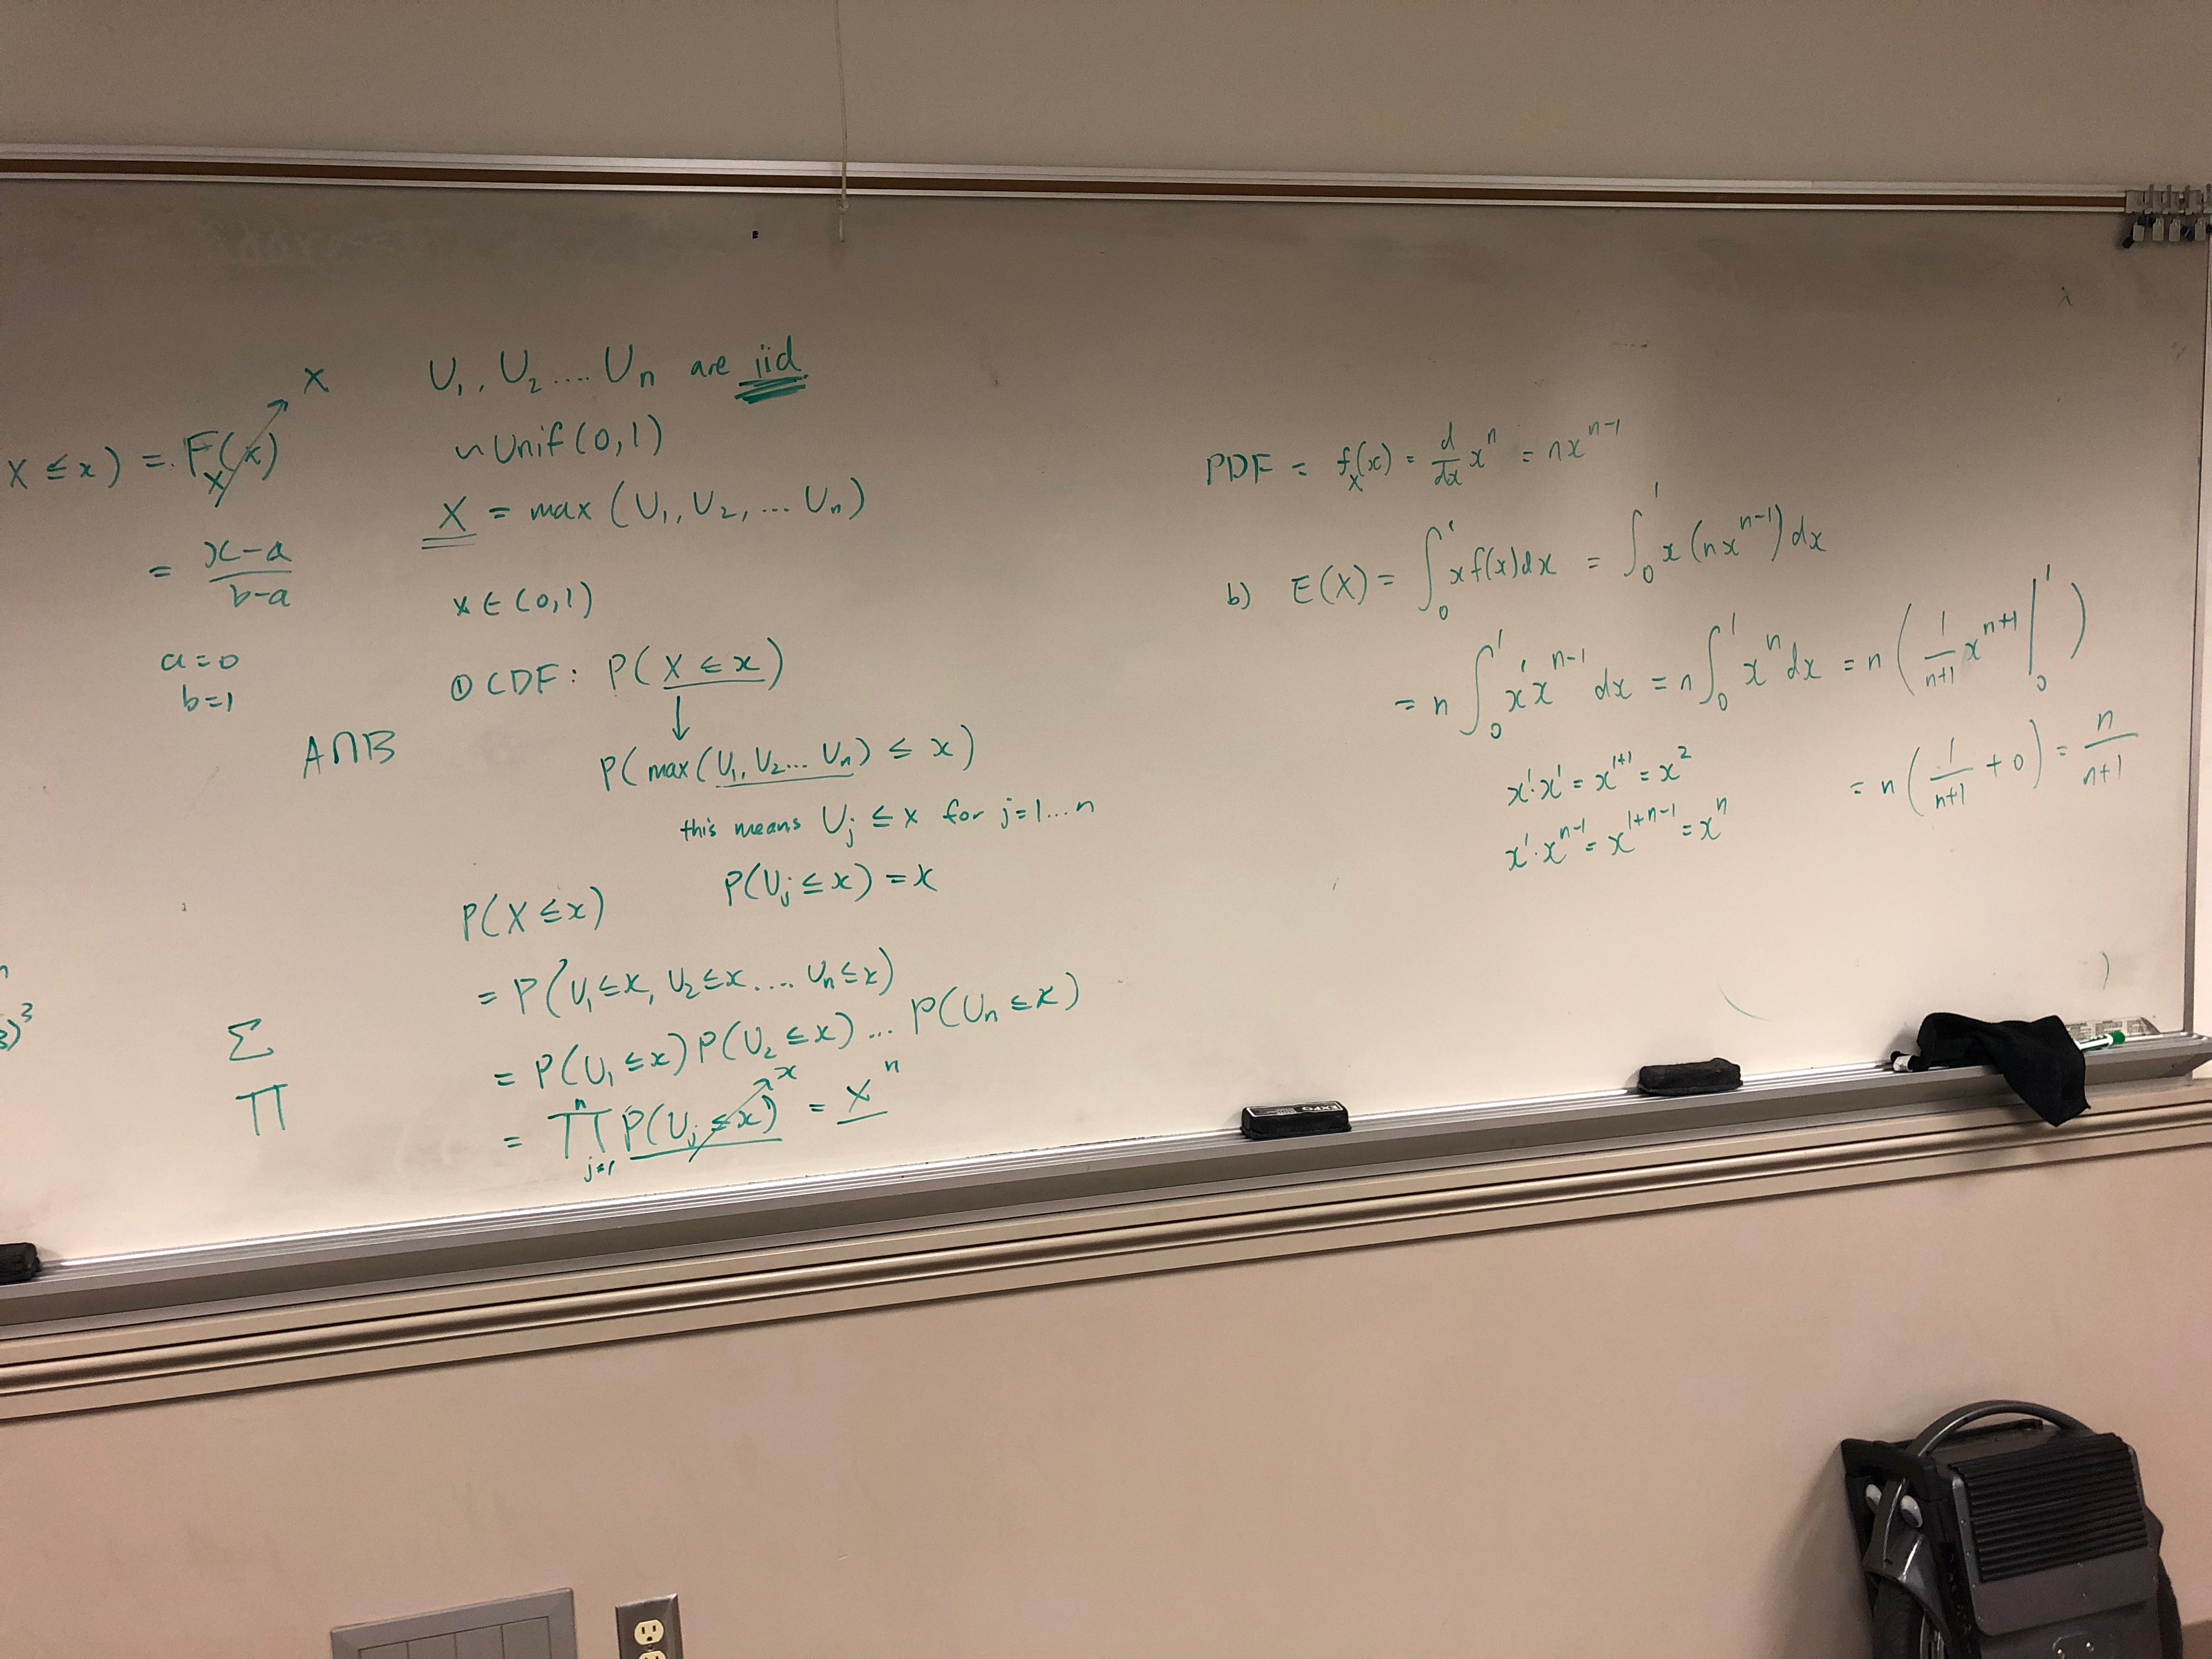 X ≤ x) = F_X(x) ↗ x
= (x-a)/(b-a)
a=0
b=1
A∩B
Σ
Π
)³
U₁, U₂ .... Uₙ are iid
~ Unif (0,1)
X = max (U₁, U₂, ... Uₙ)
x ∈ (0,1)
① CDF: P(X ≤ x)
↓
P(max(U₁, U₂... Uₙ) ≤ x)
this means Uⱼ ≤ x for j=1...n
P(Uⱼ ≤ x) = x
P(X ≤ x)
= P(U₁ ≤ x, U₂ ≤ x .... Uₙ ≤ x)
= P(U₁ ≤ x) P(U₂ ≤ x) ... P(Uₙ ≤ x)
= ∏_{j=1}^{n} P(Uⱼ ≤ x) ↗ x = xⁿ
PDF = f_X(x) = d/dx xⁿ = nx^{n-1}
b) E(X) = ∫₀¹ x f(x) dx = ∫₀¹ x (nx^{n-1}) dx
= n ∫₀¹ x¹ x^{n-1} dx = n ∫₀¹ xⁿ dx = n ( 1/(n+1) x^{n+1} |₀¹ )
x¹·x¹ = x^{1+1} = x²
x¹·x^{n-1} = x^{1+n-1} = xⁿ
= n ( 1/(n+1) + 0 ) = n/(n+1)
EXPO